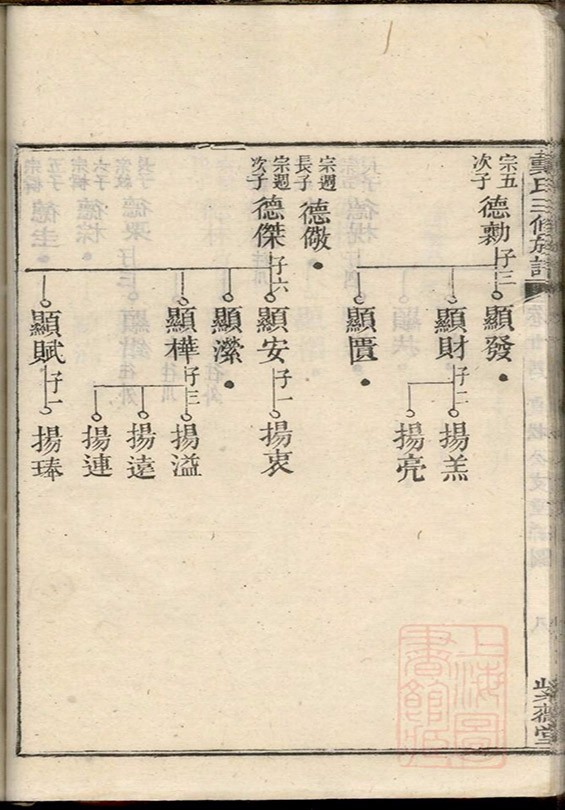 氏三修族譜
宗五
次子
德勷
子三
顯發
顯財
子二
揚羔
揚亮
顯匱
宗週
長子
德儆
宗週
次子
德傑
子六
顯安
子一
揚衷
顯瀠
顯樺
子三
揚溢
揚遠
揚連
顯賦
子一
揚琫
上海圖
書館藏